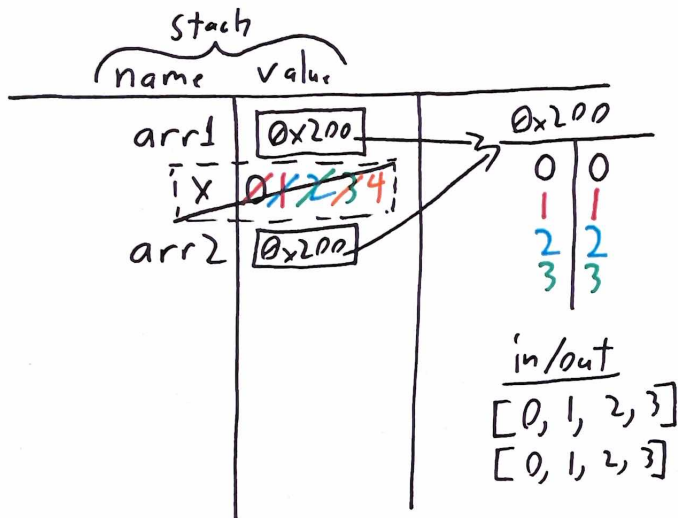 stach
name value
arr1 0x200
x 0 1 2 3 4
arr2 0x200
0x200
0 0
1 1
2 2
3 3
in/out
[0, 1, 2, 3]
[0, 1, 2, 3]